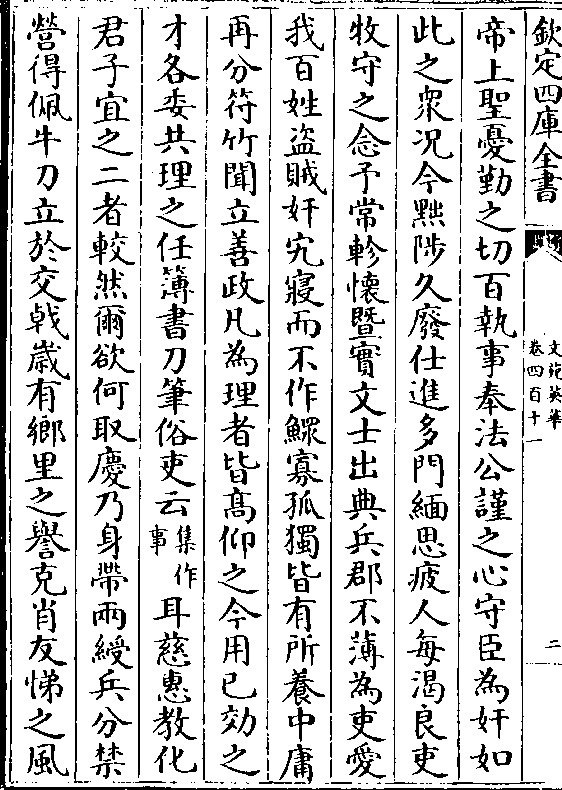 欽定四庫全書
文苑英華
卷四百十一
二
帝上聖憂勤之切百執事奉法公謹之心守臣為奸如
此之衆况今黜陟久廢仕進多門緬思疲人每渴良吏
牧守之念予常軫懷暨實文士出典兵郡不薄為吏愛
我百姓盜賊奸宄寢而不作鰥寡孤獨皆有所養中庸
再分符竹聞立善政凡為理者皆髙仰之今用已効之
才各委共理之任簿書刀筆俗吏云集作事耳慈惠教化
君子宜之二者較然爾欲何取慶乃身帶兩綬兵分禁
營得佩牛刀立於交㦸歳有鄉里之譽克肖友悌之風